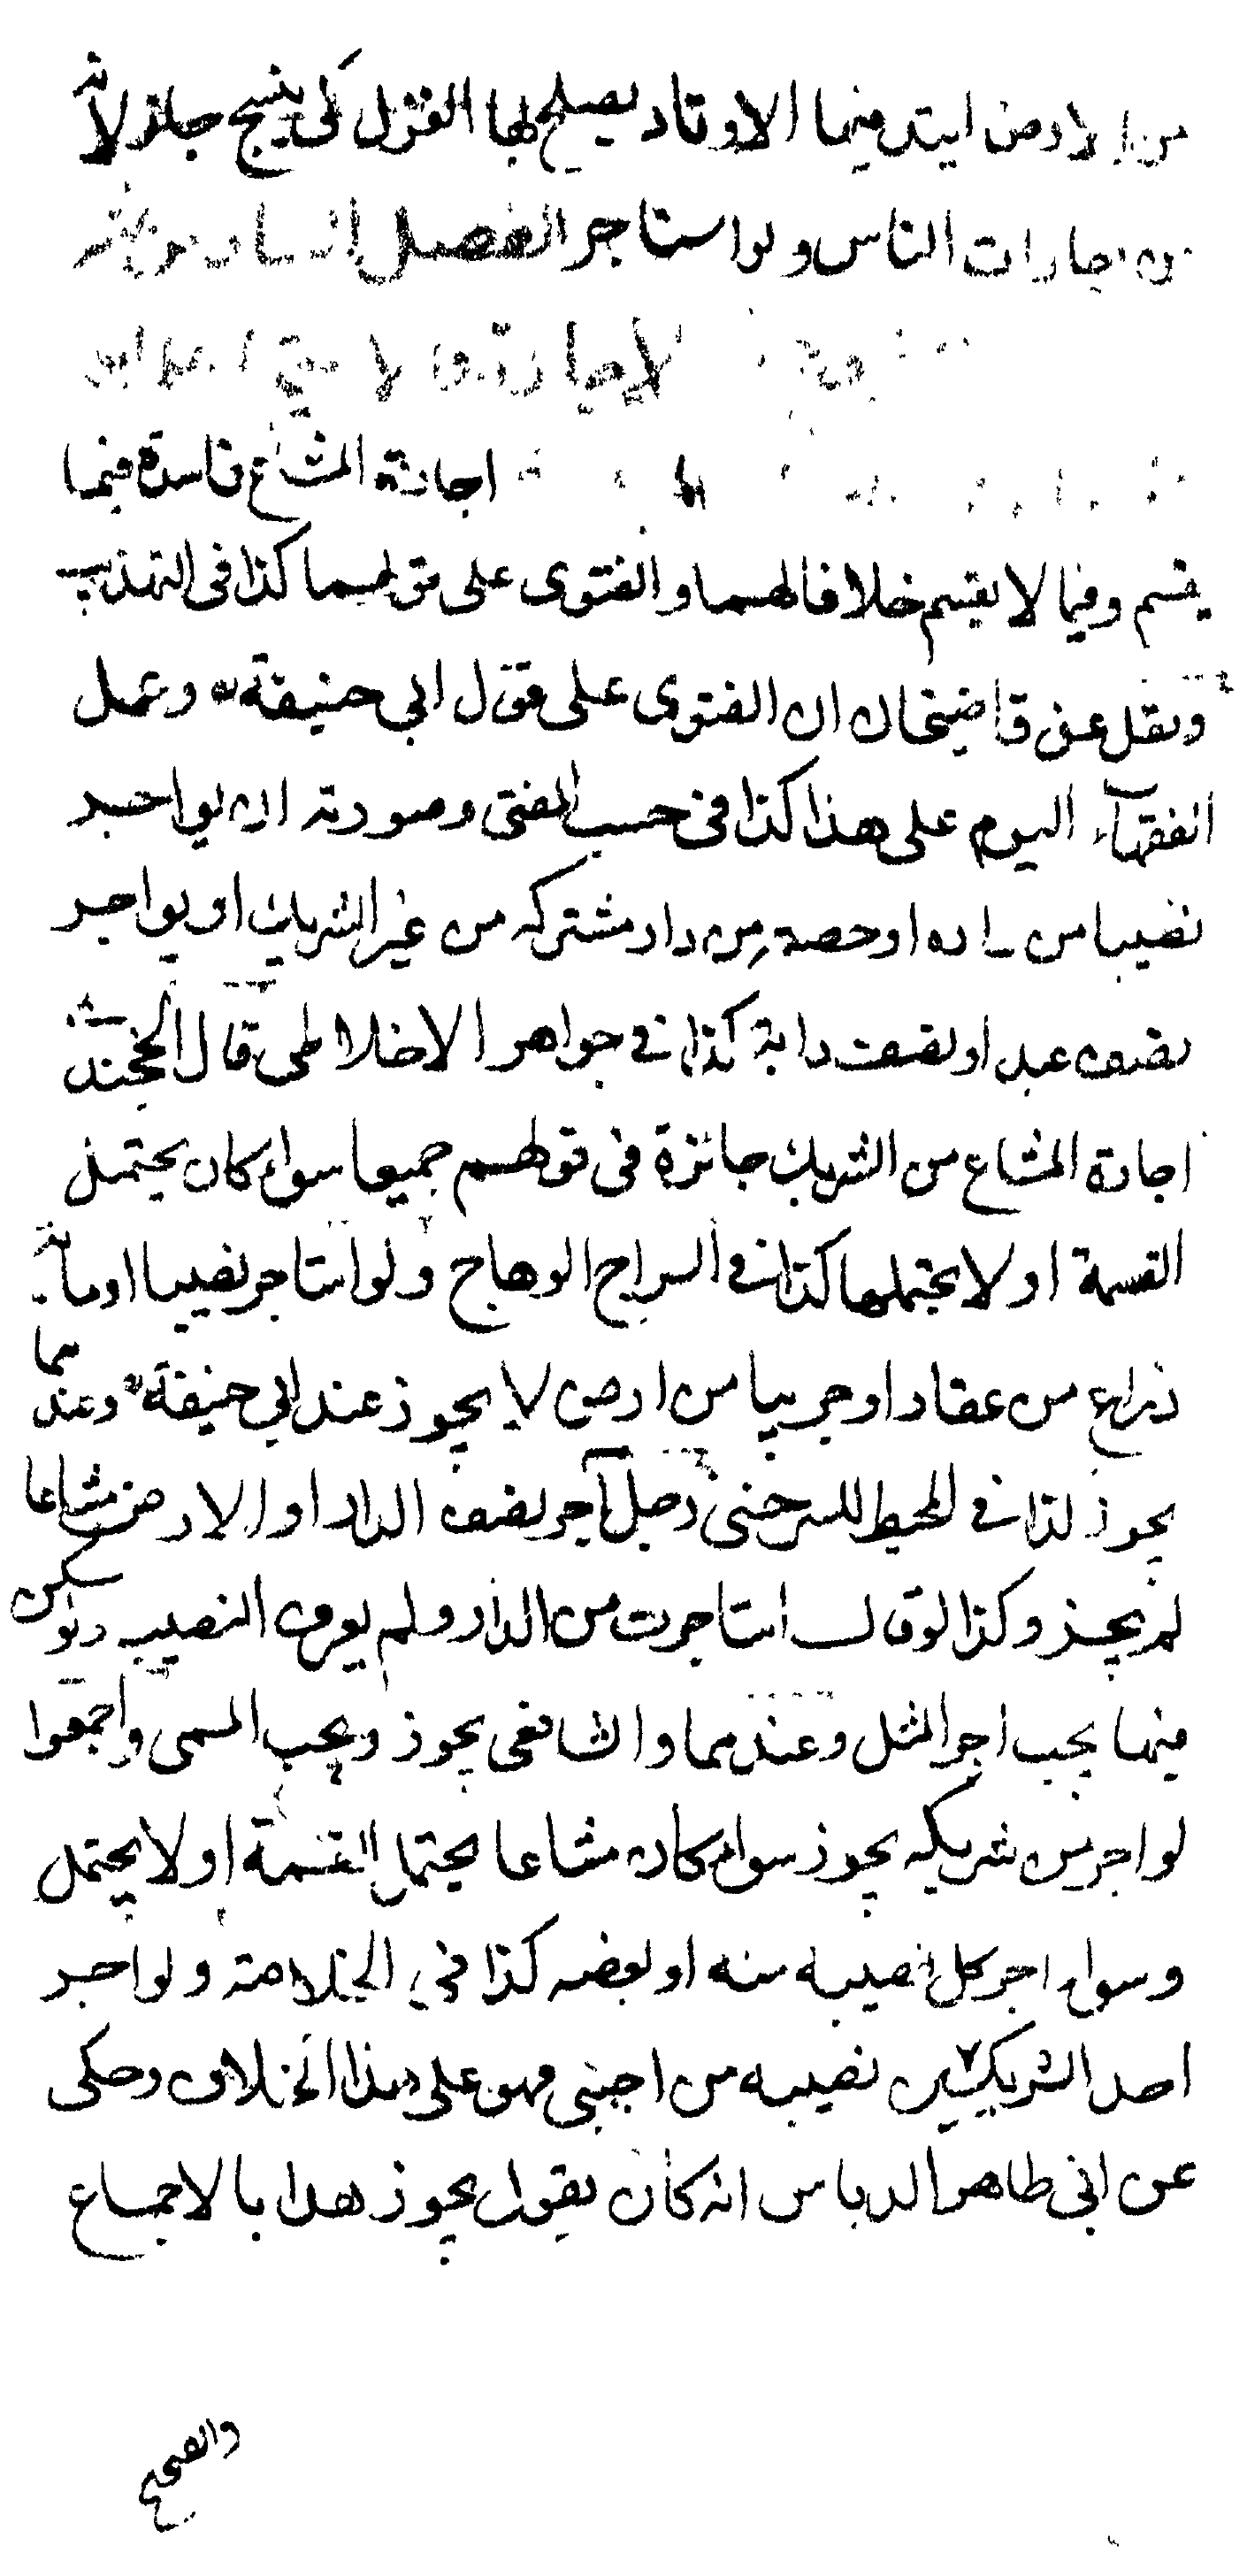 من الارض ليتد فيها الاوتاد يصلح بها الغزل كى ينسج جاز لانه
من اجارات الناس ولو استاجر
الاجارة لا
اجارة المشاع فاسدة فيما
يقسم وفيما لا يقسم خلافا لهما والفتوى على قولهما كذا فى التهذيب
ونقل عن قاضيخان ان الفتوى على قول ابى حنيفة رح وعمل
الفقهاء اليوم على هذا كذا فى حسب المفتى وصورته ان يواجر
نصيبا من داره او حصة من دار مشتركه من غير الشريك او يواجر
نصف عبد او نصف دابة كذا فى جواهر الاخلاطى قال الخجندى
اجارة المشاع من الشريك جائزة فى قولهم جميعا سواء كان يحتمل
القسمة او لا يحتملها كذا فى السراج الوهاج ولو استاجر نصيبا او مائة
ذراع من عقار او جريبا من ارض لا يجوز عند ابى حنيفة رح وعندهما
يجوز كذا فى المحيط للسرخسى رجل آجر نصف الدار او الارض مشاعا
لم يجز وكذا لو قال استاجرت من الدار ولم يعرف النصيب ولو سكن
فيها يجب اجر المثل وعندهما والشافعى يجوز ويجب المسمى واجمعوا
لو اجر من شريكه يجوز سواء كان مشاعا يحتمل القسمة او لا يحتمل
وسواء اجر كل نصيبه منه او بعضه كذا فى الخلاصة ولو اجر
احد الشريكين نصيبه من اجنبى فهو على هذا الخلاف وحكى
عن ابى طاهر الدباس انه كان يقول يجوز هذا بالاجماع
والصحيح